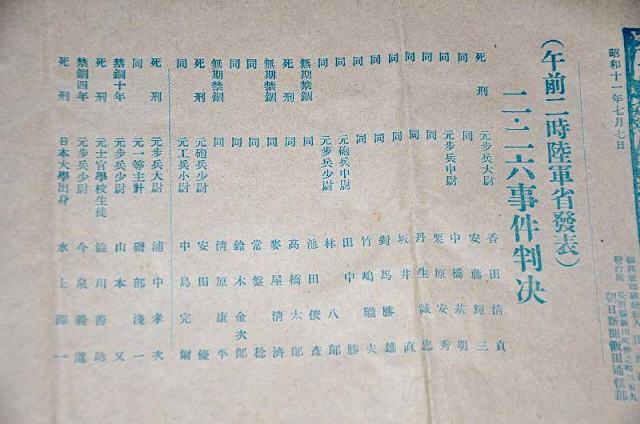 昭和十一年七月七日
朝日新聞飯田通信部
(午前二時陸軍省發表)
二・二六事件判決
死刑 元步兵大尉 香田清貞
同 同 安藤輝三
同 元步兵中尉 中橋基明
同 同 栗原安秀
同 同 丹生誠忠
同 同 坂井直
同 同 對馬勝雄
同 同 竹嶋繼夫
同 元砲兵中尉 田中勝
同 元步兵少尉 林八郎
無期禁錮 同 池田俊彥
死刑 同 高橋太郎
無期禁錮 同 麥屋清濟
同 同 常盤稔
同 同 鈴木金次郎
無期禁錮 同 清原康平
死刑 元砲兵少尉 安田優
同 元工兵小尉 中島完爾
死刑 元步兵大尉 浦中孝次
同 元一等主計 磯部淺一
禁錮十年 元步兵少尉 山本又
死刑 元士官學校生徒 澁川善助
禁錮四年 元步兵少尉 今泉義道
死刑 日本大學出身 水上源一